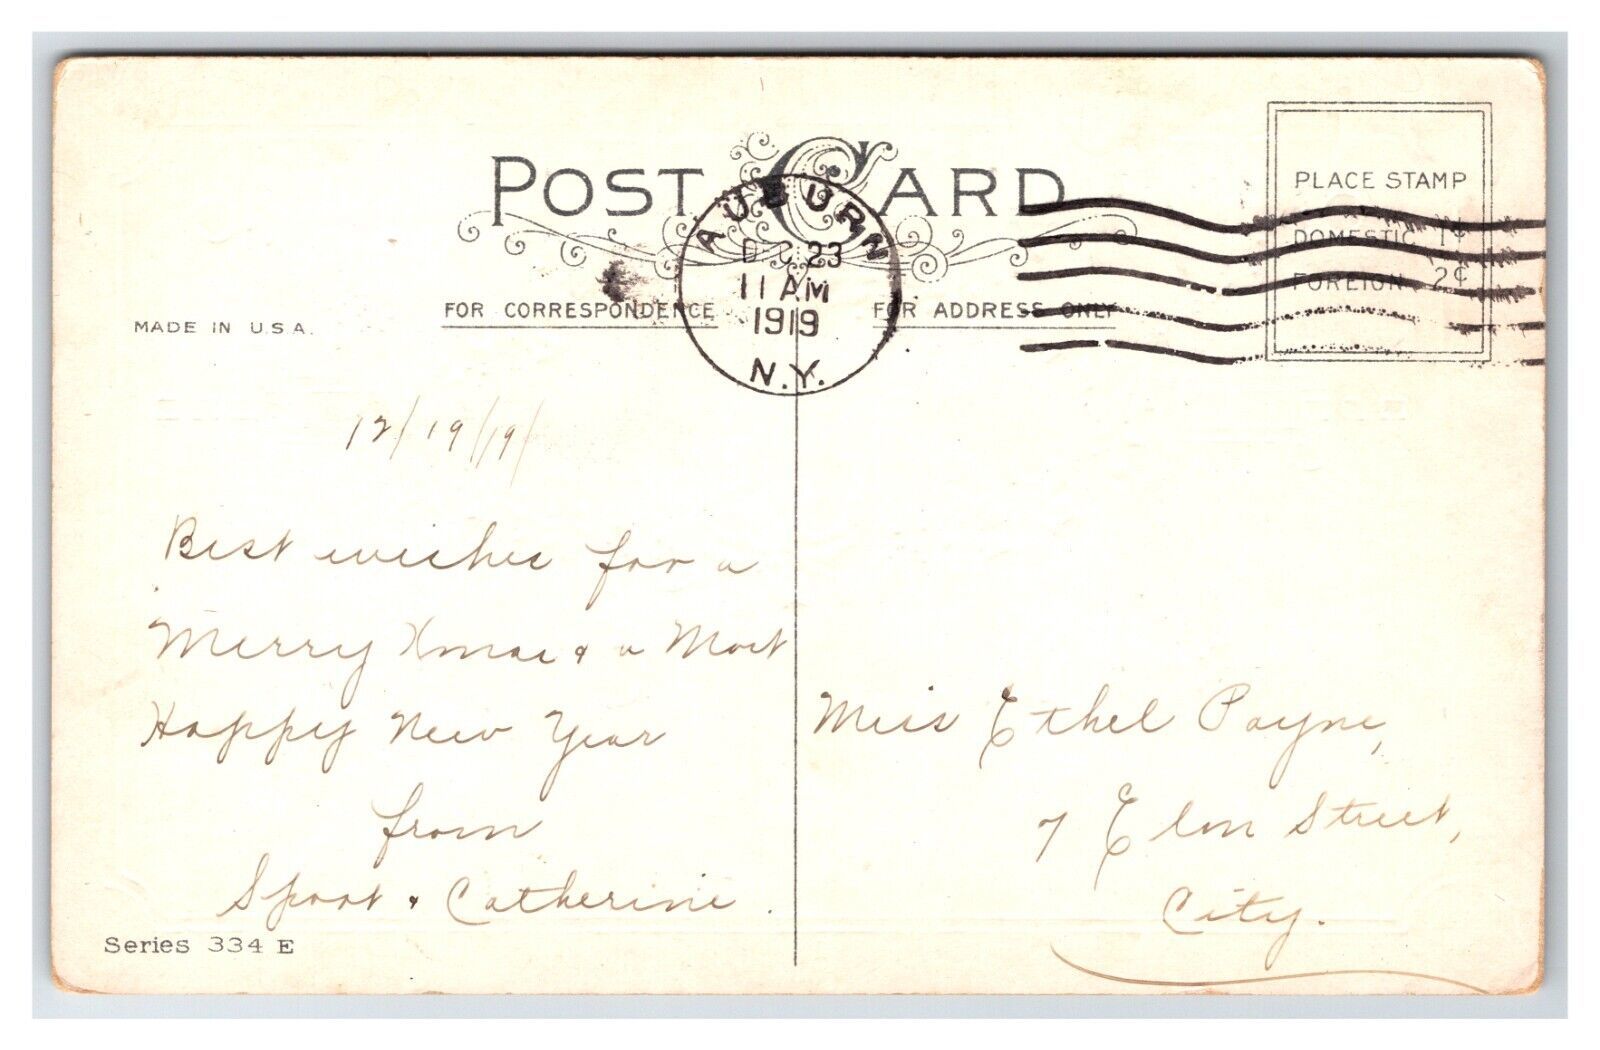 POST CARD
AUBURN
DEC 23
11 AM
1919
N.Y.
PLACE STAMP
DOMESTIC 1¢
FOREIGN 2¢
FOR CORRESPONDENCE
FOR ADDRESS ONLY
MADE IN U.S.A.
12/19/19/
Best wishes for a
Merry Xmas & a Most
Happy New Year
from
& Catherine.
Series 334 E
Miss Ethel Payne,
7 Elm Street,
City.